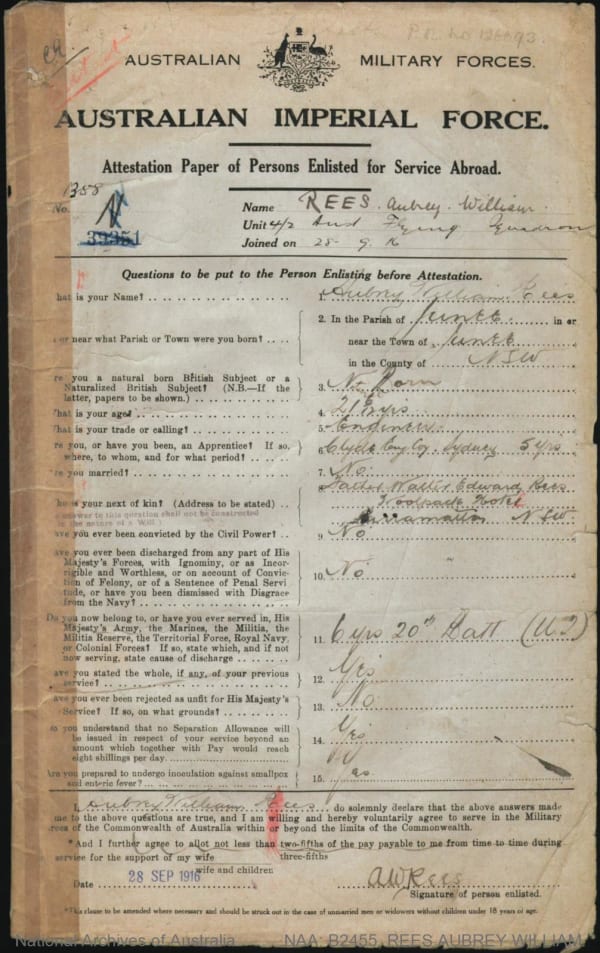 P.R. No 126693
AUSTRALIAN MILITARY FORCES.
AUSTRALIAN IMPERIAL FORCE.
Attestation Paper of Persons Enlisted for Service Abroad.
1358
No. 39351
Name REES. Aubrey. William.
Unit 4/2 Aust Flying Squadron
Joined on 28. 9. 16
Questions to be put to the Person Enlisting before Attestation.
hat is your Name? 1. Aubrey William Rees
2. In the Parish of Junee in or
or near what Parish or Town were you born? near the Town of Junee
in the County of NSW
re you a natural born British Subject or a
Naturalized British Subject? (N.B.—If the 3. Nat Born
latter, papers to be shown.)
hat is your age? 4. 21 yrs
hat is your trade or calling? 5. Engineer
re you, or have you been, an Apprentice? If so, 6. Clyde Eng Coy. Sydney 5 yrs
where, to whom, and for what period?
re you married? 7. No
8. Father Walter Edward Rees
ho is your next of kin? (Address to be stated) Woolpack Hotel
answer to this question shall not be constructed
in the nature of a Will.) Parramatta NSW
ave you ever been convicted by the Civil Power? 9. No
ave you ever been discharged from any part of His
Majesty's Forces, with Ignominy, or as Incor-
rigible and Worthless, or on account of Convic-
tion of Felony, or of a Sentence of Penal Servi 10. No "
tude, or have you been dismissed with Disgrace
from the Navy?
Do you now belong to, or have you ever served in, His
Majesty's Army, the Marines, the Militia, the
Militia Reserve, the Territorial Force, Royal Navy, 11. 6 yrs 20th Batt
or Colonial Forces? If so, state which, and if not
now serving, state cause of discharge
ave you stated the whole, if any, of your previous
service? 12. Yes
ave you ever been rejected as unfit for His Majesty's
Service? If so, on what grounds? 13. No
o you understand that no Separation Allowance will
be issued in respect of your service beyond an
amount which together with Pay would reach 14. Yes
eight shillings per day
Are you prepared to undergo inoculation against smallpox
and enteric fever? 15. Yes
I, Aubrey William Rees do solemnly declare that the above answers made
me to the above questions are true, and I am willing and hereby voluntarily agree to serve in the Military
rces of the Commonwealth of Australia within or beyond the limits of the Commonwealth.
*And I further agree to allot not less than two-fifths of the pay payable to me from time to time during
service for the support of my wife three-fifths
wife and children
Date 28 SEP 1916 AWRees
Signature of person enlisted.
*This clause to be amended where necessary and should be struck out in the case of unmarried men or widowers without children under 18 years of age.
National Archives of Australia NAA: B2455, REES AUBREY WILLIAM